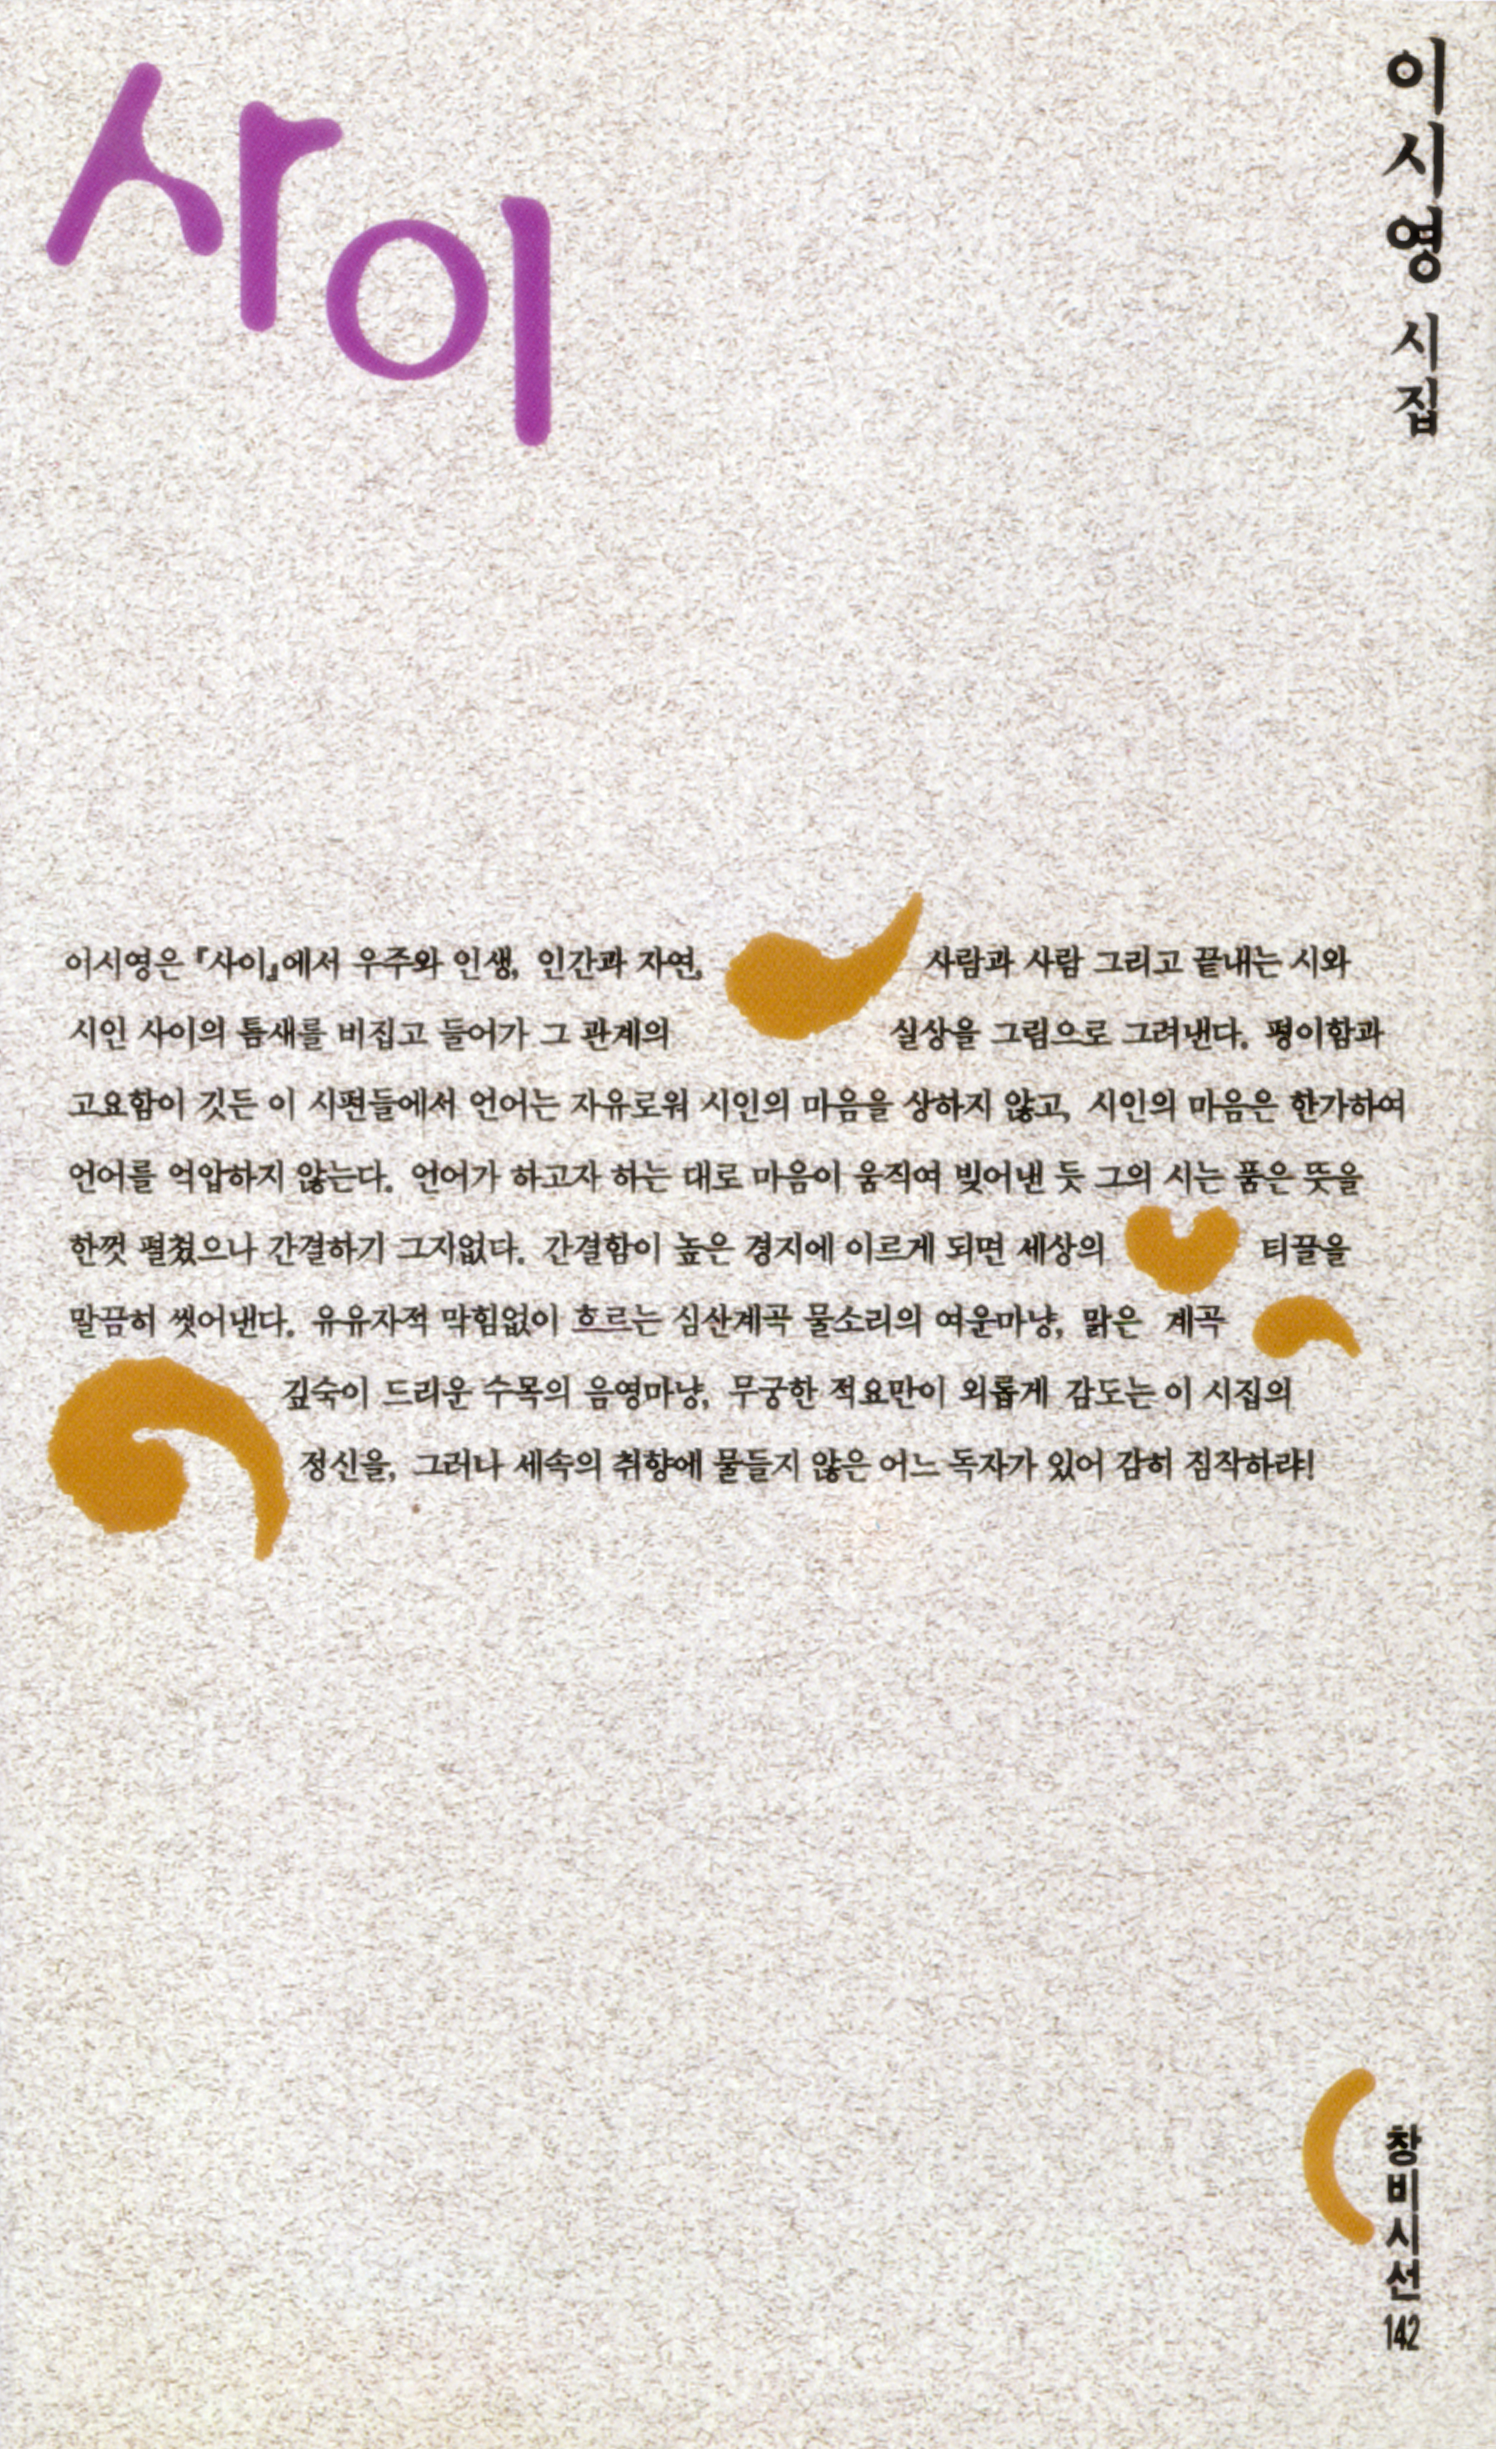 사이
이시영 시집
이시영은 『사이』에서 우주와 인생, 인간과 자연, 사람과 사람 그리고 끝내는 시와
시인 사이의 틈새를 비집고 들어가 그 관계의 실상을 그림으로 그려낸다. 평이함과
고요함이 깃든 이 시편들에서 언어는 자유로워 시인의 마음을 상하지 않고, 시인의 마음은 한가하여
언어를 억압하지 않는다. 언어가 하고자 하는 대로 마음이 움직여 빚어낸 듯 그의 시는 품은 뜻을
한껏 펼쳤으나 간결하기 그지없다. 간결함이 높은 경지에 이르게 되면 세상의 티끌을
말끔히 씻어낸다. 유유자적 막힘없이 흐르는 심산계곡 물소리의 여운마냥, 맑은 계곡
깊숙이 드리운 수목의 음영마냥, 무궁한 적요만이 외롭게 감도는 이 시집의
정신을, 그러나 세속의 취향에 물들지 않은 어느 독자가 있어 감히 짐작하랴!
창비시선 142